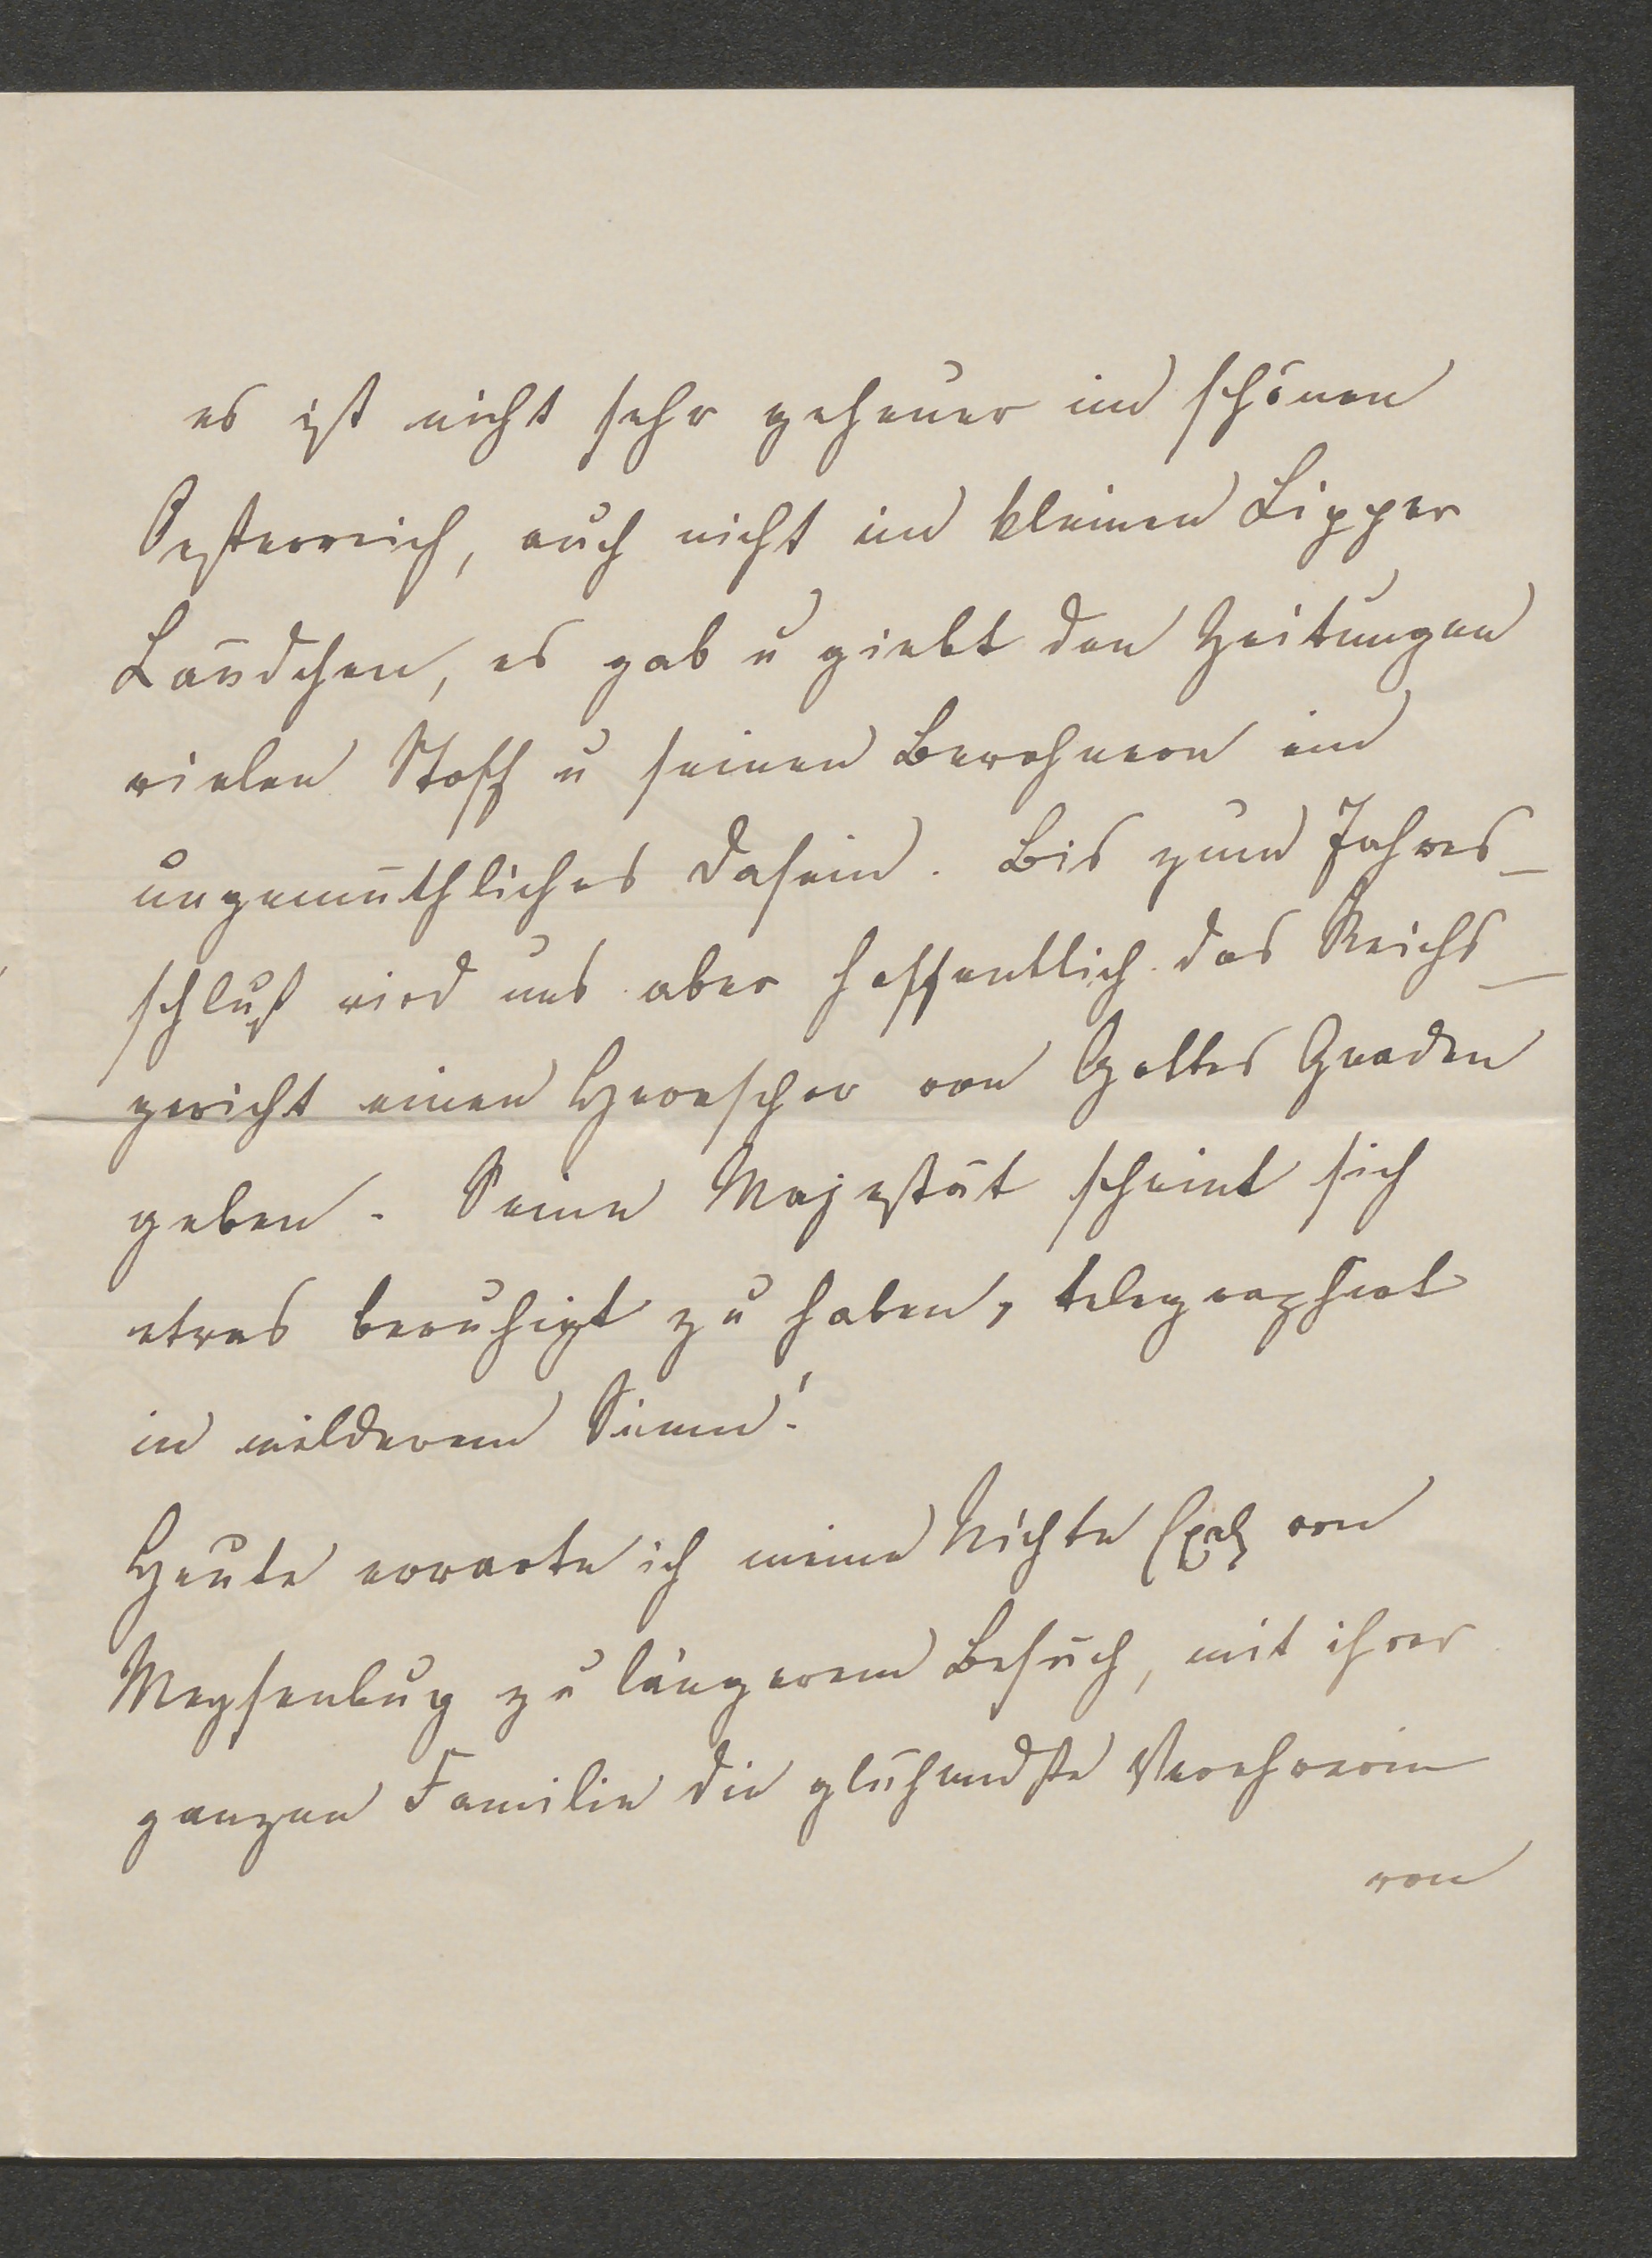 es ist nicht sehr geheuer im schönen
Oesterreich, auch nicht im kleinen Lipper
Ländchen, es gab u giebt den Zeitungen
vielen Stoff u seinen Bewohnern ein
ungemüthliches Dasein. Bis zum Jahres-
schluß wird uns aber hoffentlich das Reichs-
gericht einen Herrscher von Gottes Gnaden
geben. Seine Majestät scheint sich
etwas beruhigt zu haben, telegraphirt
in milderem Sinn!
Heute erwarte ich meine Nichte von
Meysenbug zu längerem Besuch, mit ihrer
ganzen Familie die glühendste Verehrerin
von